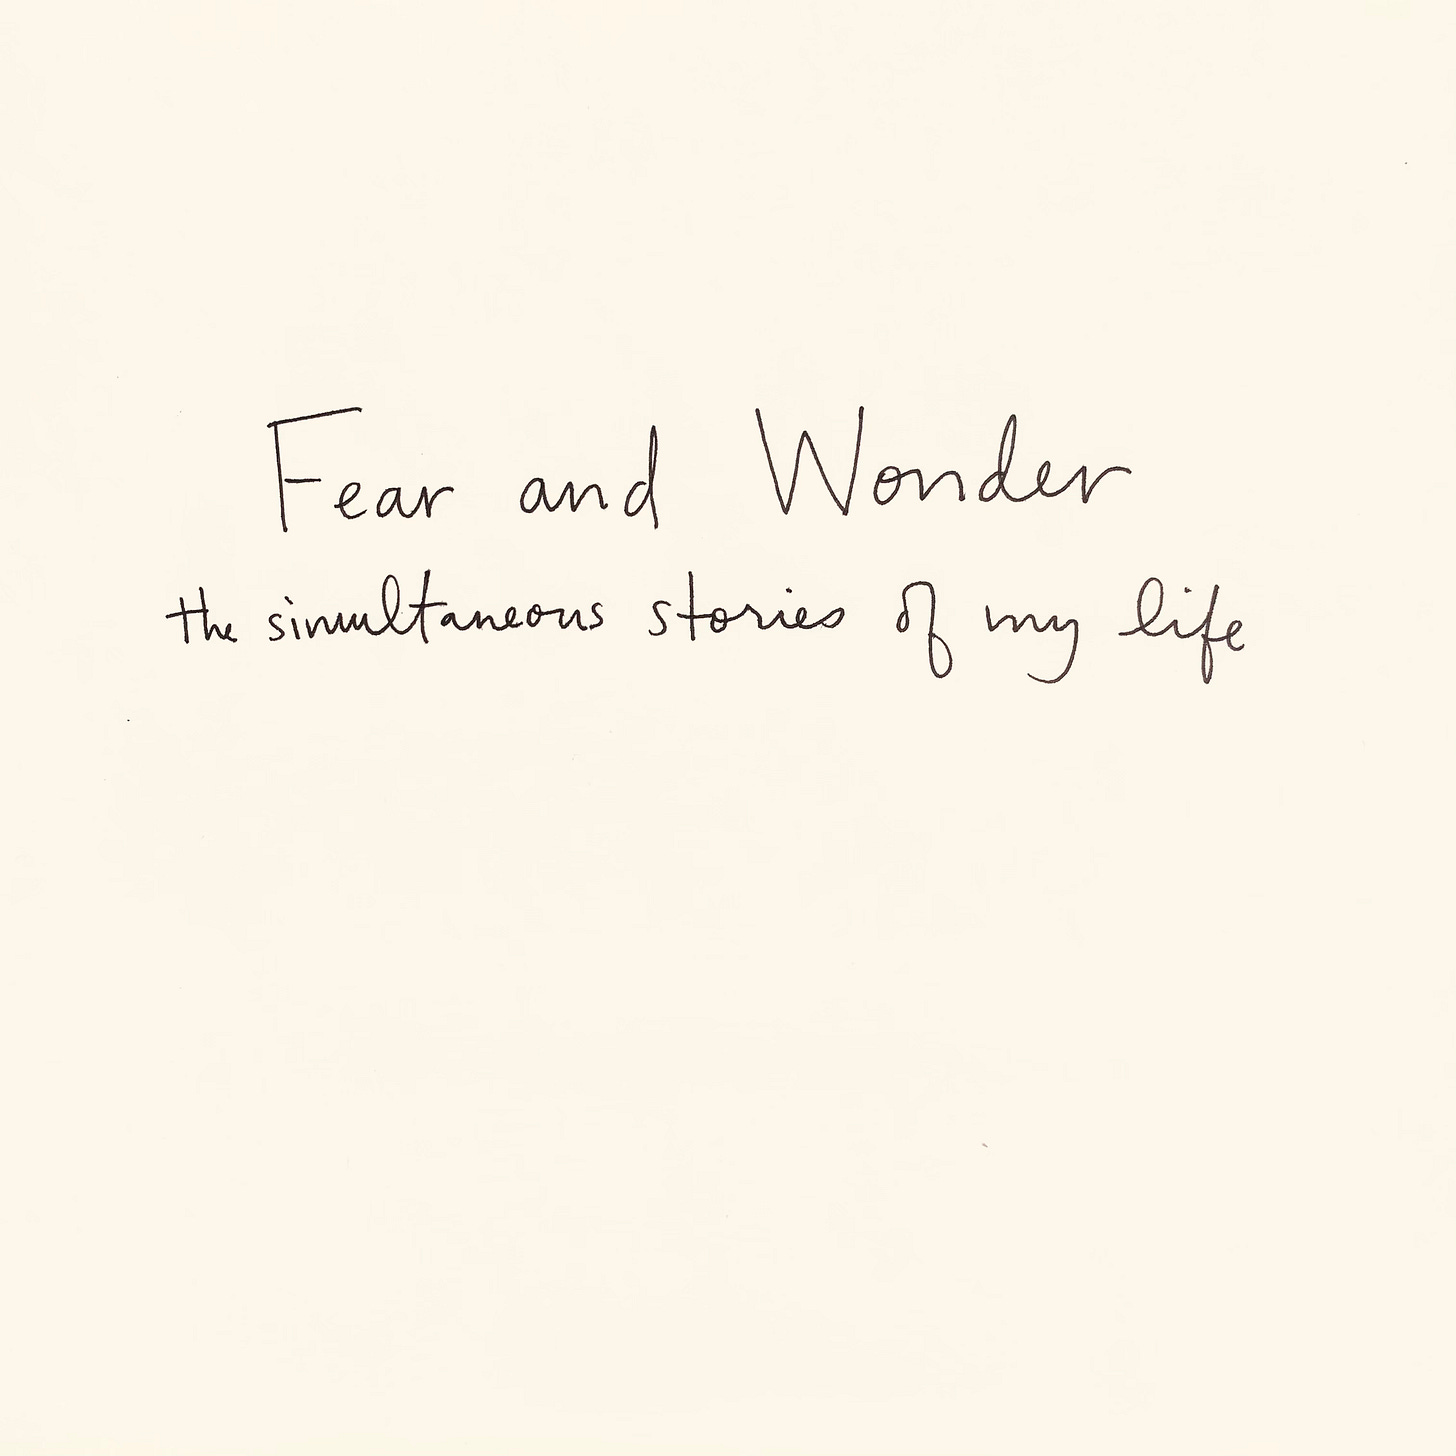 Fear and Wonder
the simultaneous stories of my life